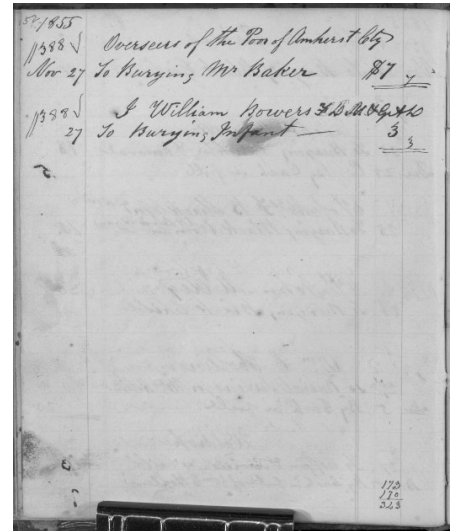 1855
p388 Overseers of the Poor of Amherst Cty
Nov 27 To Burying Mr Baker $7 7
p388 J William Bowers
27 To Burying Infant — 3 3
173
170
323